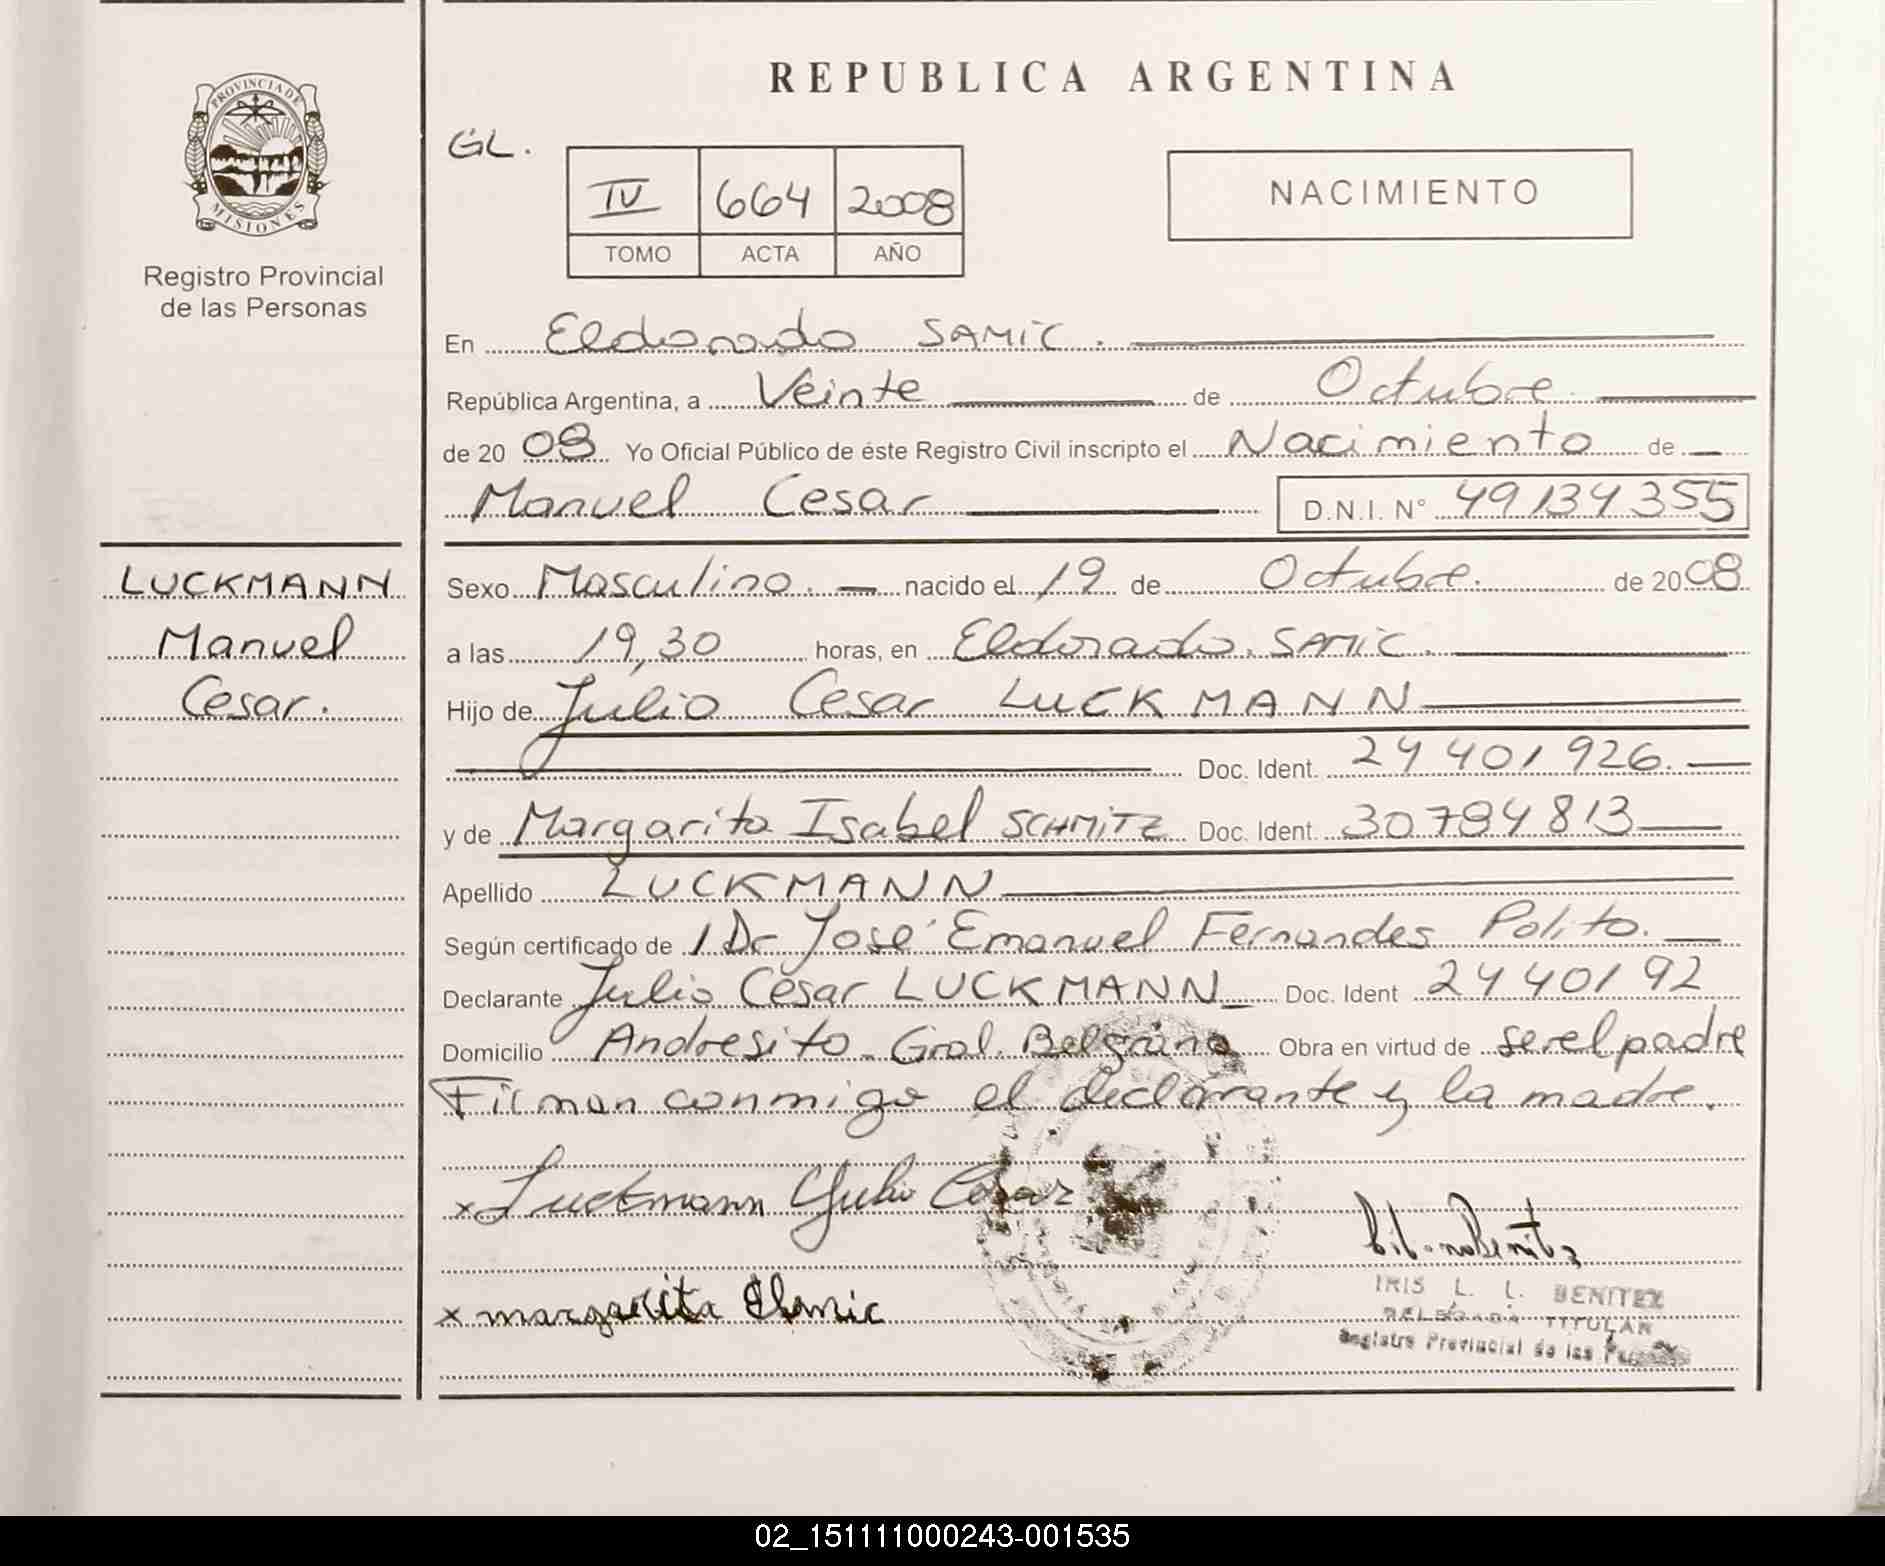 REPUBLICA ARGENTINA
PROVINCIA DE
MISIONES
Registro Provincial
de las Personas
GL.
IV 664 2008
TOMO ACTA AÑO
NACIMIENTO
En Eldorado SAMIC.
República Argentina, a Veinte de Octubre
de 20 08 Yo Oficial Público de éste Registro Civil inscripto el Nacimiento de
Manuel Cesar D.N.I. N° 49134355
LUCKMANN
Manuel
Cesar.
Sexo Masculino. nacido el 19 de Octubre. de 20 08
a las 19,30 horas, en Eldorado. SAMIC.
Hijo de Julio Cesar LUCKMANN
Doc. Ident. 24 401 926.
y de Margarita Isabel SCHMITZ Doc. Ident. 30784813
Apellido LUCKMANN
Según certificado de Dr José Emanuel Fernandes Polito.
Declarante Julio Cesar LUCKMANN Doc. Ident 24 401 92
Domicilio Andresito - Gral. Belgrano Obra en virtud de ser el padre
Firman conmigo el declarante y la madre.
x Luckmann Julio Cesar
x margarita
IRIS L. L. BENITEZ
DELEGADA TITULAR
Registro Provincial de las Personas
02_151111000243-001535